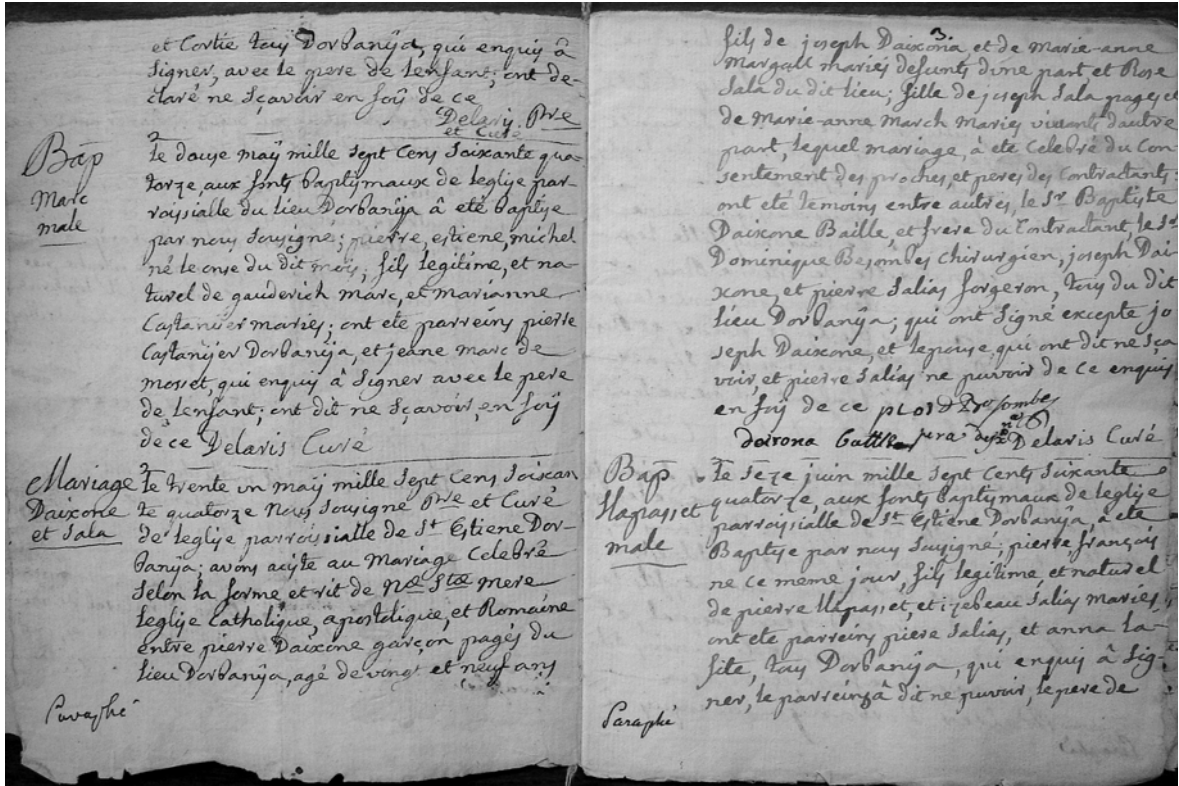 et Cortie tous Dorbanÿa, qui enquis â
signer, avec le pere de lenfant; ont de-
claré ne sçavoir en foÿ de ce
Delaris Pre
et Curé
Bap
Marc
male
Le douse maÿ mille sept cens soixante qua-
torze, aux fonts baptymaux de leglise par-
roissialle du lieu Dorbanÿa â eté baptise
par nous sousigné; pierre, estiene, michel
né le onse du dit mois, fils legitime, et na-
turel de gauderich marc, et marianne
Castanier mariés; ont eté parreins pierre
Castanÿer Dorbanÿa, et jeane marc de
mosset, qui enquis â signer avec le pere
de lenfant; ont dit ne sçavoir, en foÿ
de ce Delaris Curé
Mariage
Daixone
et Sala
Le trente un maÿ mille sept cens soixan
te quatorze nous sousigné Pre et Curé
de leglise parroissialle de St Estiene Dor-
banÿa; avons asisté au Mariage Celebré
selon la forme et rit de Nre Ste mere
leglise Catholique, apostolique, et Romaine
entre pierre Daixone garçon pagés du
lieu Dorbanÿa, agé de vingt et neuf ans
Paraphé
3.
fils de joseph Daixona et de marie-anne
margall mariés defunts dune part, et Rose
Sala du dit lieu; fille de joseph Sala pages et
de Marie-anne March mariés vivants dautre
part, lequel mariage, â eté Celebré du Con-
sentement des proches, et peres des Contractants;
ont eté temoins entre autres, le Sr Baptiste
Daixone Baille, et frere du Contractant, le Sr
Dominique Besombes Chirurgién, joseph Dai-
xone, et pierre Salias forgeron, tous du dit
lieu Dorbanÿa; qui ont signé excepté jo
seph Daixone, et lepouse, qui ont dit ne sça
voir, et pierre Salias ne puvoir de ce enquis
en foÿ de ce
Delaris Curé
Bap
Llapasset
male
Le seze juin mille sept cents soixante
quatorze, aux fonts baptymaux de leglise
parroissialle de St Estiene Dorbanÿa, â eté
Baptise par nous sousigné; pierre françois
ne ce meme jour, fils legitime, et naturel
de pierre llapasset, et izebeau Salias mariés,
ont eté parreins piere Salias, et anna la-
fite, tous Dorbanÿa, qui enquis â sig-
ner, le parreins â dit ne puvoir, le pere de
Paraphé